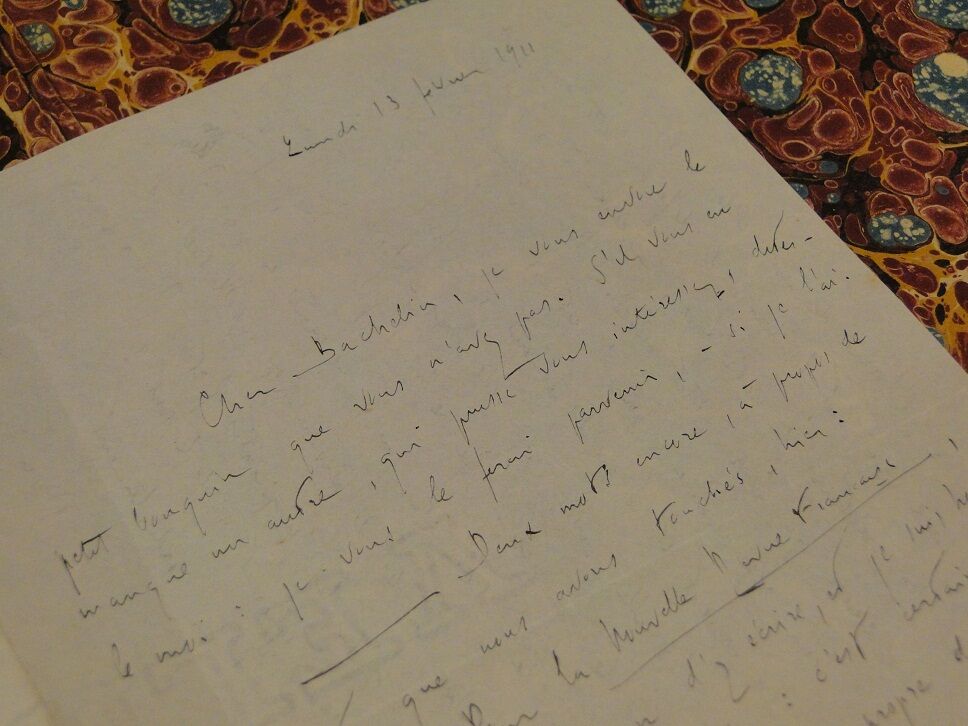 Lundi 13 février 1911
Cher Bachelin, je vous envoie le
petit bouquin que vous n'avez pas. S'il vous en
manque un autre, qui puisse vous intéresser, dites-
le moi : je vous le ferai parvenir, – si je l'ai.
Deux mots encore, à propos de
que nous avons touchés, hier :
la Nouvelle Revue Française,
d'y écrire, et je suis
: c'est certain
propre